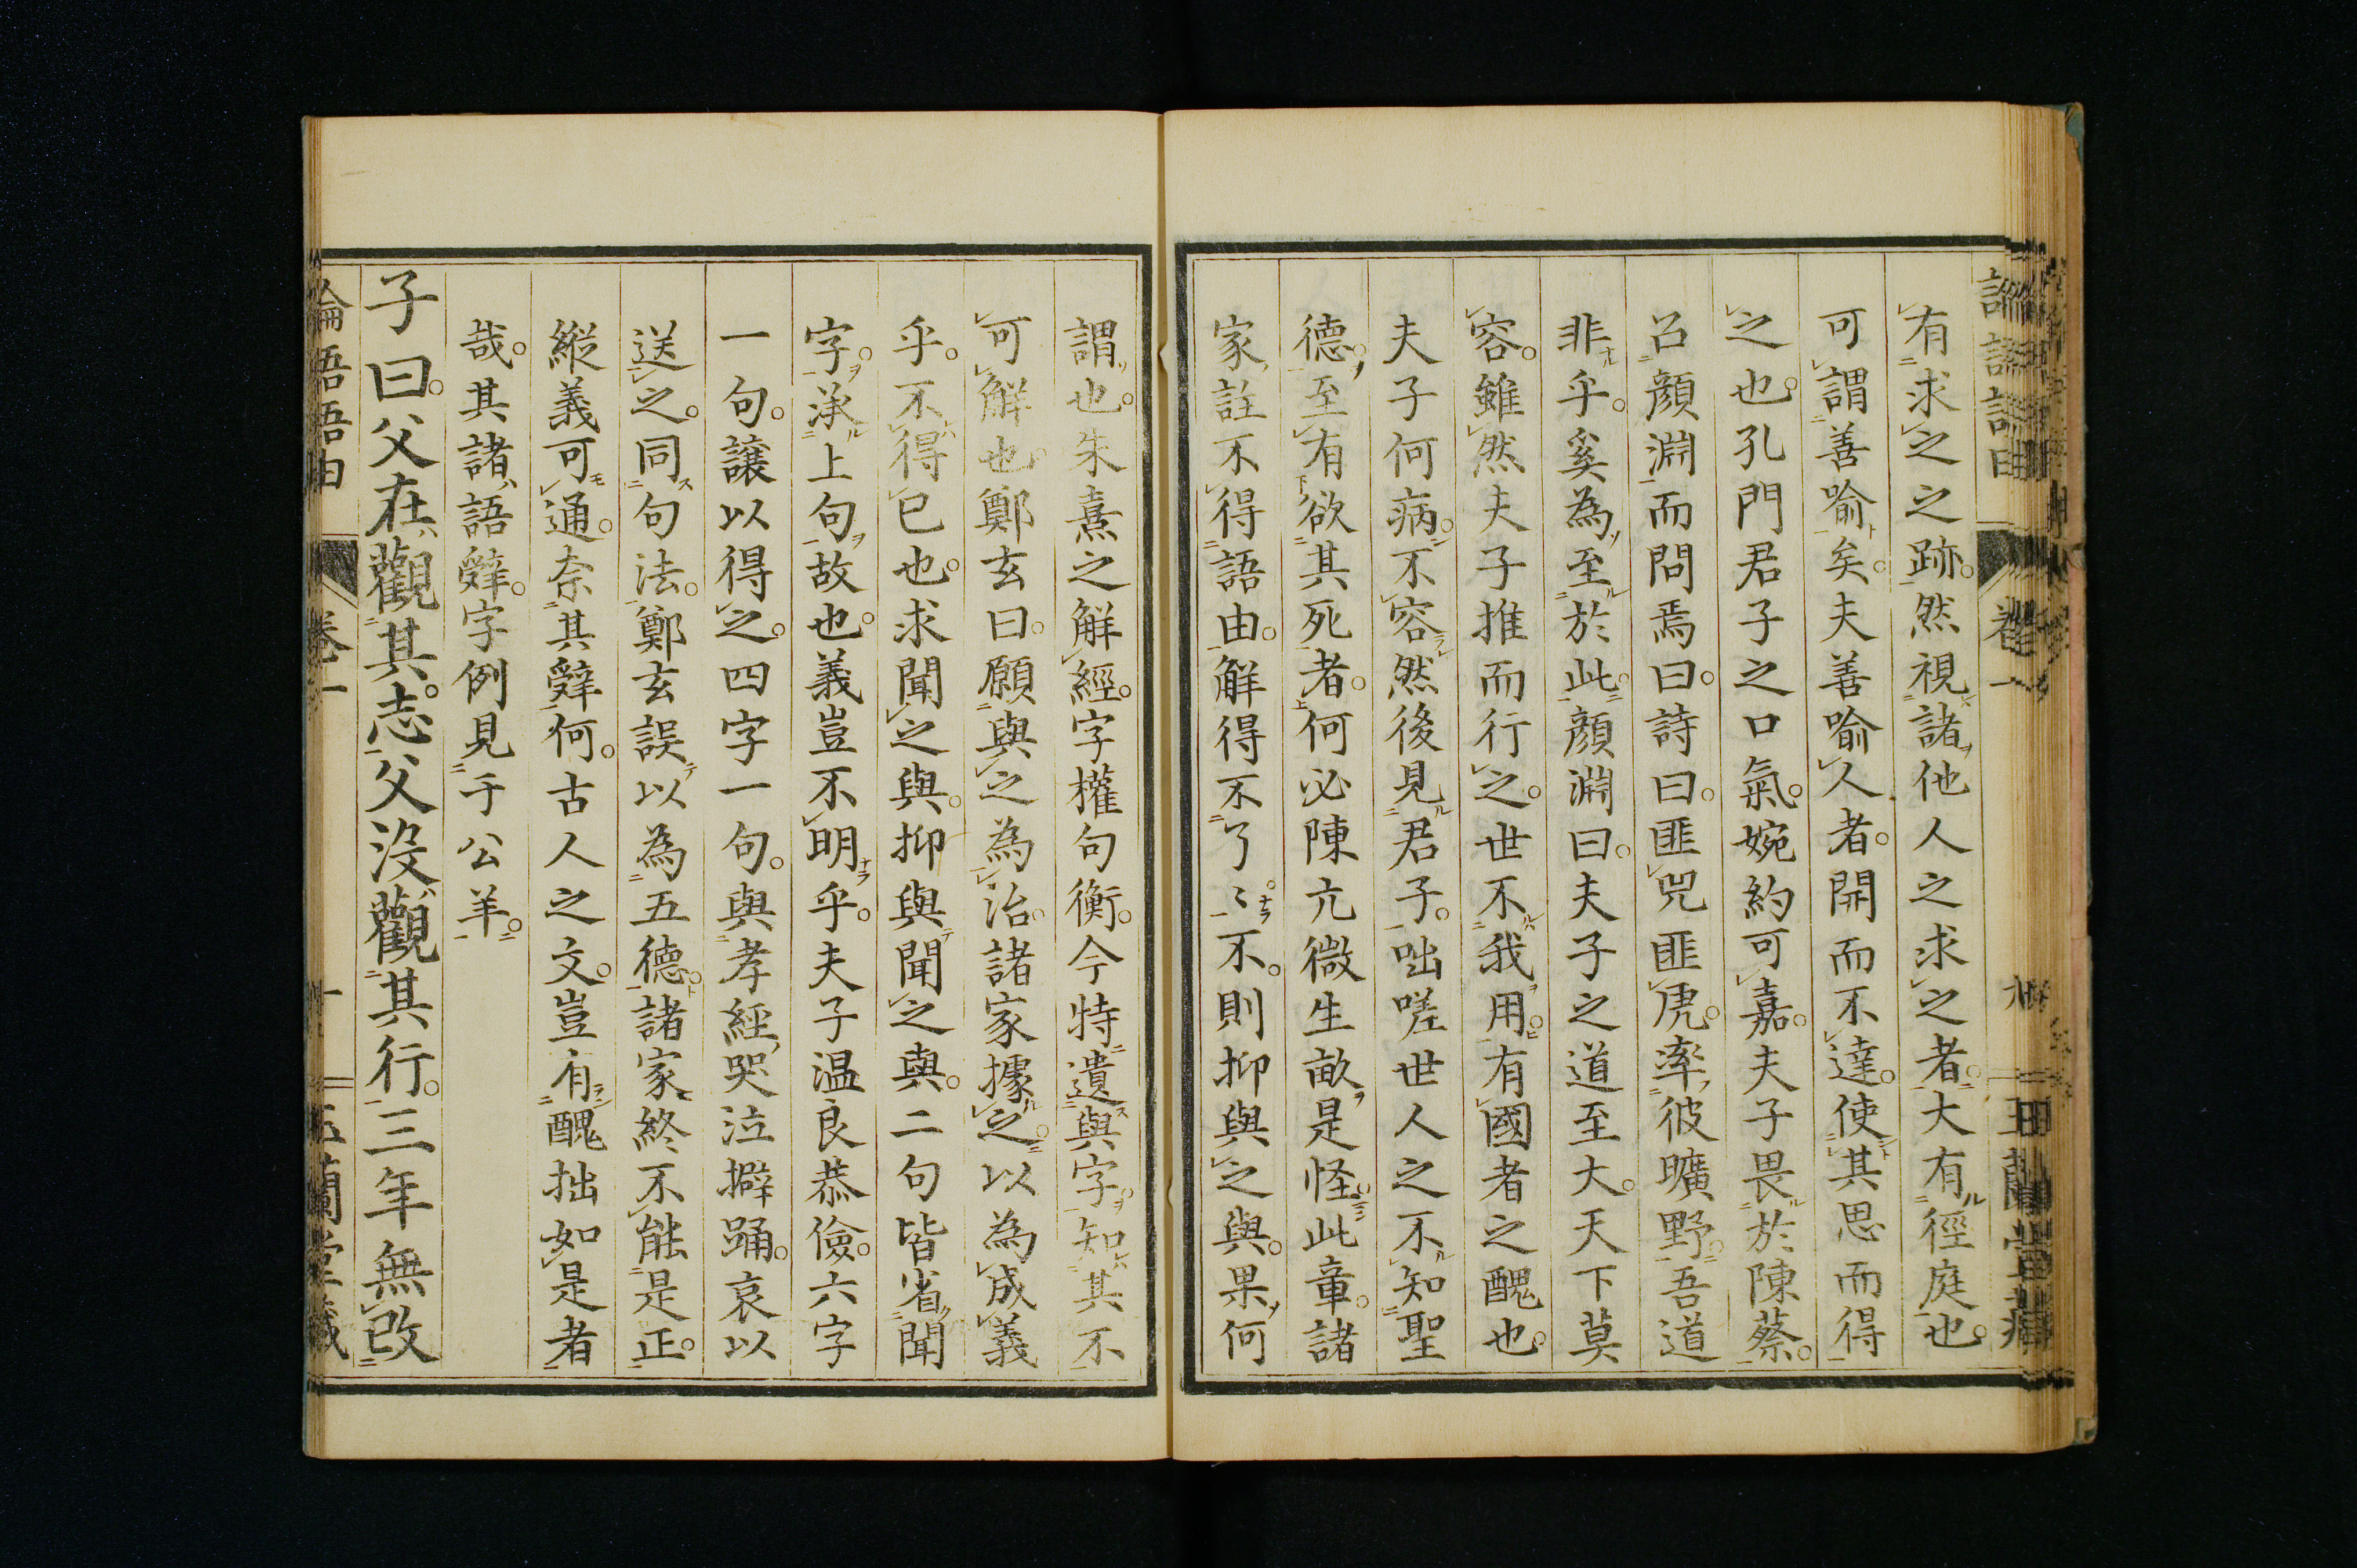 有求之之跡。然視諸他人之求之者。大有徑庭也。
可謂善喻矣。夫善喻人者。開而不達。使其思而得
之也。孔門君子之口氣。婉約可嘉。夫子畏於陳蔡。
召顏淵而問焉曰。詩曰。匪兕匪虎。率彼曠野。吾道
非乎。奚為至於此。顏淵曰。夫子之道至大。天下莫
容。雖然夫子推而行之。世不我用。有國者之醜也。
夫子何病。不容然後見君子。咄嗟世人之不知聖
德。至有欲其死者。何必陳亢微生畝。是怪此章。諸
家註不得語由。解得不了〻。不則抑與之與。果何
謂也。朱熹之解經。字權句衡。今特遺與字。知其不
可解也。鄭玄曰。願與之為治。諸家據之。以為成義
乎。不得已也。求聞之與。抑與聞之與。二句皆省聞
字。承上句故也。義豈不明乎。夫子温良恭儉。六字
一句。讓以得之。四字一句。與孝經哭泣擗踊。哀以
送之。同句法。鄭玄誤以為五德。諸家終不能是正。
縱義可通。奈其辭何。古人之文。豈有醜拙如是者
哉。其諸語辭。字例見于公羊。
子曰。父在觀其志。父沒觀其行。三年無改
論語語由
卷一